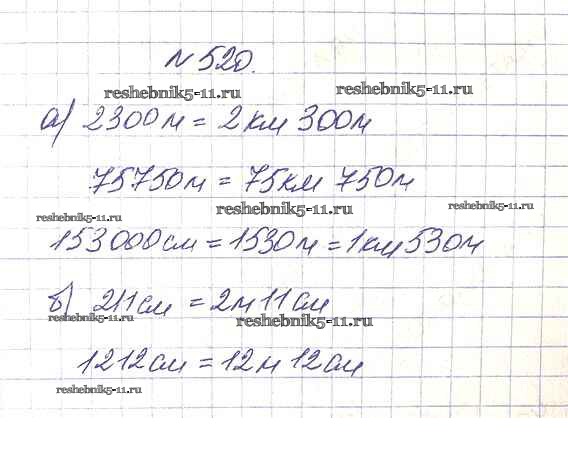 №520.
reshebnik5-11.ru reshebnik5-11.ru
а) 2300м = 2км 300м
75750м = 75км 750м
reshebnik5-11.ru reshebnik5-11.ru reshebnik5-11.ru
153000см = 1530м = 1км 530м
б) 211см = 2м 11см
reshebnik5-11.ru reshebnik5-11.ru
1212см = 12м 12см
reshebnik5-11.ru